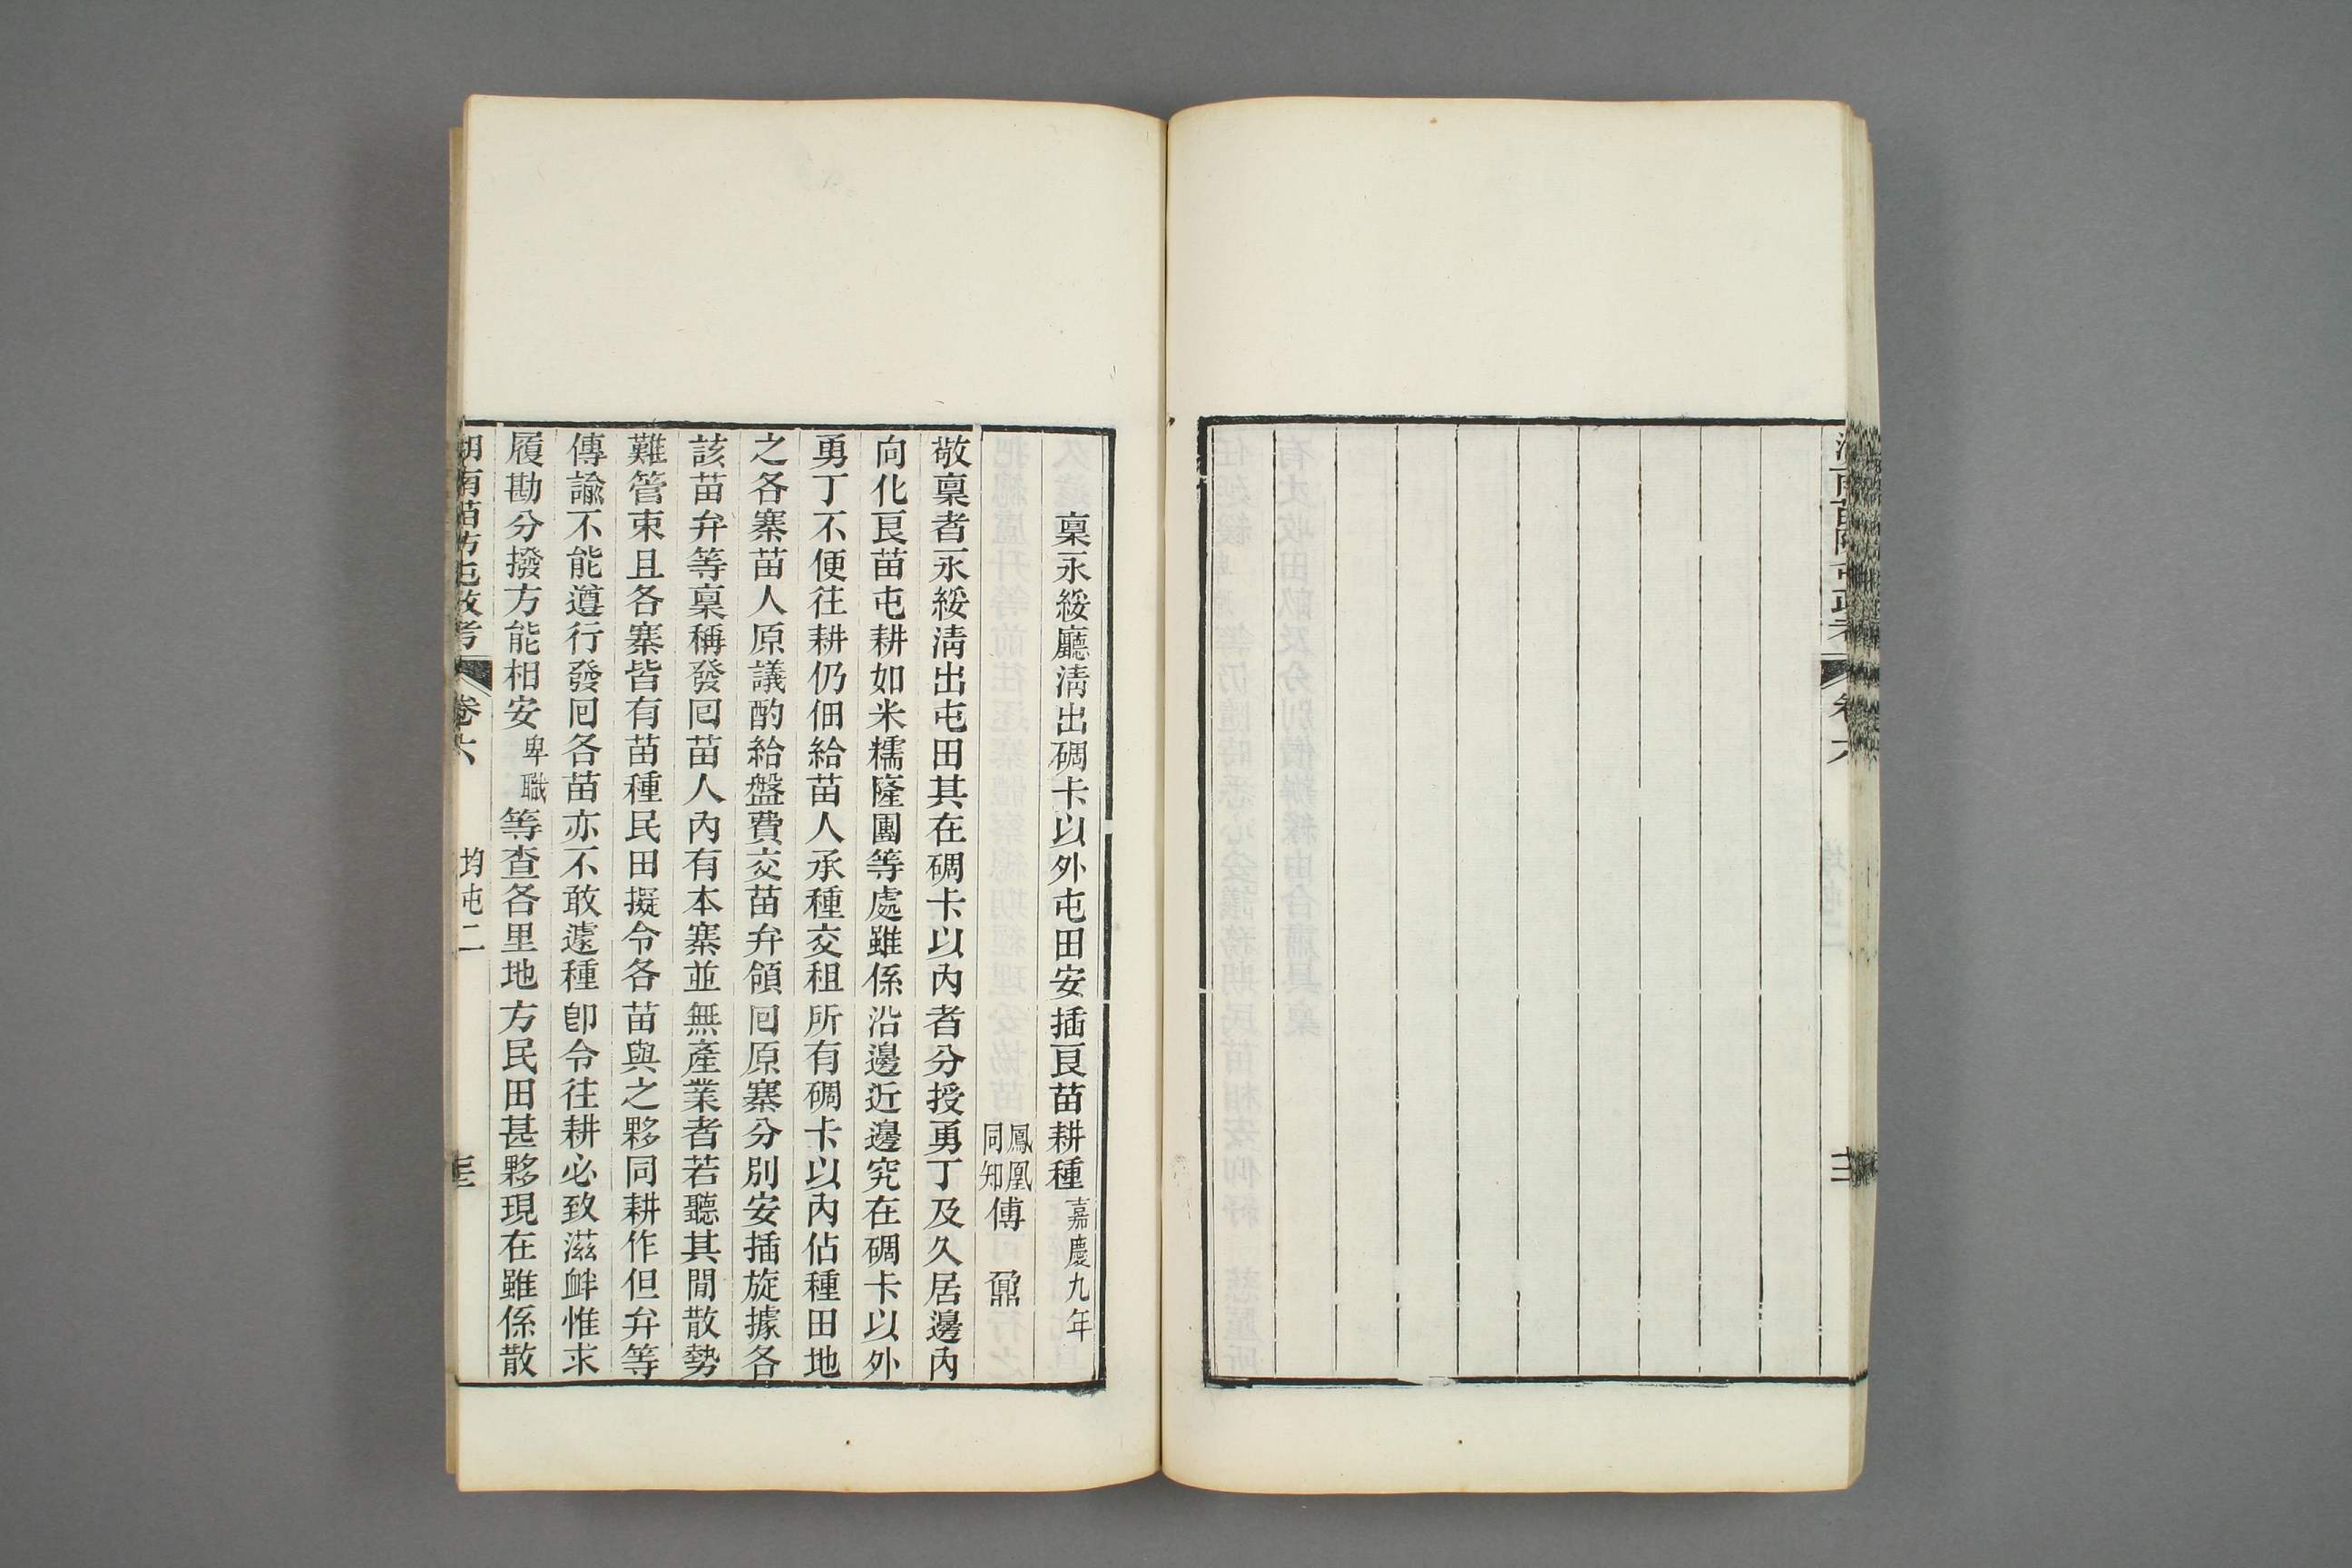 稟永綏廳淸出碉卡以外屯田安插艮苗耕種嘉慶九年
鳳凰同知傅鼐
敬稟者永綏淸出屯田其在碉卡以內者分授勇丁及久居邊內
向化艮苗屯耕如米糯窿團等處雖係沿邊近邊究在碉卡以外
勇丁不便往耕仍佃給苗人承種交租所有碉卡以內佔種田地
之各寨苗人原議酌給盤費交苗弁領回原寨分別安插旋據各
該苗弁等稟稱發囘苗人內有本寨並無產業者若聽其閒散勢
難管束且各寨皆有苗種民田擬令各苗與之夥同耕作但弁等
傳諭不能遵行發囘各苗亦不敢遽種卽令往耕必致滋衅惟求
履勘分撥方能相安卑職等查各里地方民田甚夥現在雖係散
湖南苗防屯政考
卷六
均屯二